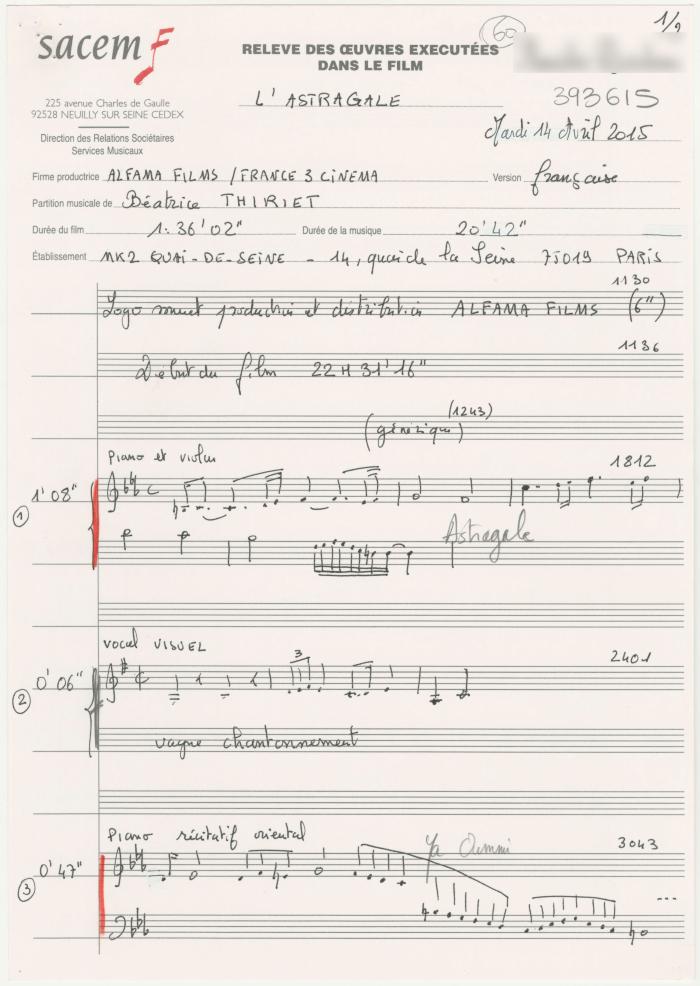 1/9
60
sacem
RELEVE DES ŒUVRES EXECUTÉES
DANS LE FILM
225 avenue Charles de Gaulle
92528 NEUILLY SUR SEINE CEDEX
L'ASTRAGALE
393615
Direction des Relations Sociétaires
Services Musicaux
Mardi 14 Avril 2015
Firme productrice ALFAMA FILMS / FRANCE 3 CINEMA Version française
Partition musicale de Béatrice THIRIET
Durée du film 1. 36'02" Durée de la musique 20'42"
Établissement MK2 QUAI-DE-SEINE - 14, quai de la Seine 75019 PARIS
1130
Logo muet production et distribution ALFAMA FILMS (6")
1136
Début du film 22 H 31'16"
(1243)
(générique)
Piano et violon
1812
1 1'08"
Astragale
vocal VISUEL
2401
2 0'06"
3
vague chantonnement
Piano récitatif oriental
Ya Oummi
3043
3 0'47"